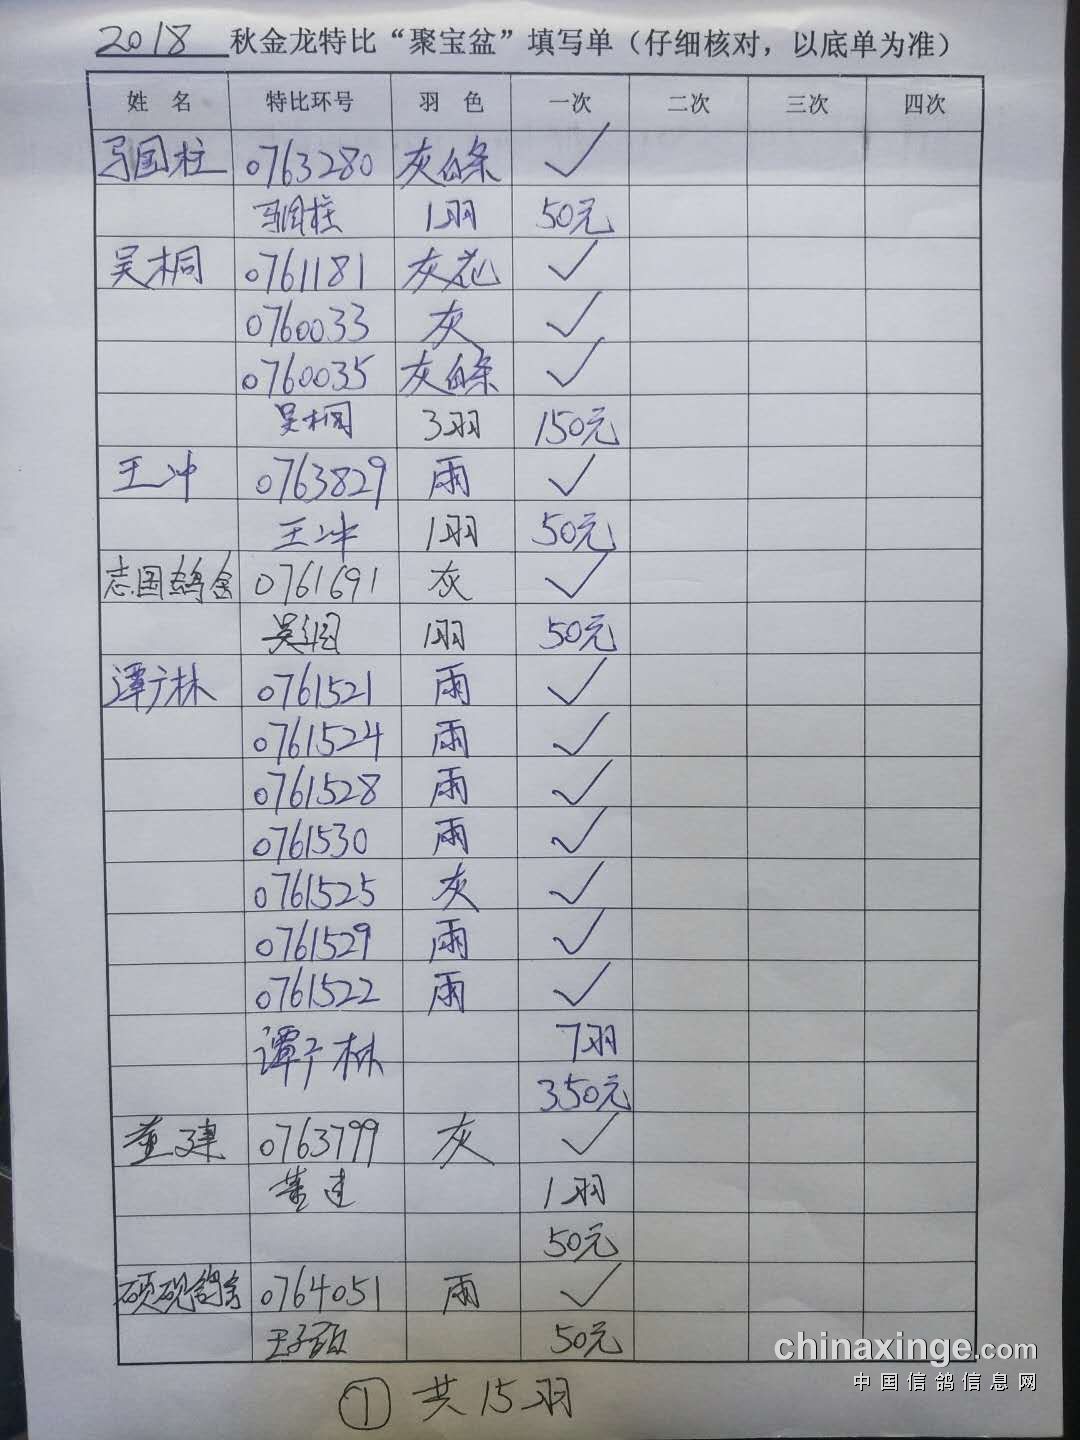 2018 秋金龙特比“聚宝盆”填写单（仔细核对，以底单为准）
姓 名 特比环号 羽 色 一次 二次 三次 四次
马国柱 0763280 灰白条 ✓
马国柱 1羽 50元
吴桐 0761181 灰花 ✓
0760033 灰 ✓
0760035 灰白条 ✓
吴桐 3羽 150元
王冲 0763829 雨 ✓
王冲 1羽 50元
志国鸽舍 0761691 灰 ✓
1羽 50元
谭广林 0761521 雨 ✓
0761524 雨 ✓
0761528 雨 ✓
0761530 雨 ✓
0761525 灰 ✓
0761529 雨 ✓
0761522 雨 ✓
谭广林 7羽
350元
董建 0763799 灰 ✓
董建 1羽
50元
硕砚鸽舍 0764051 雨 ✓
50元
① 共15羽
chinaxinge.com
中国信鸽信息网